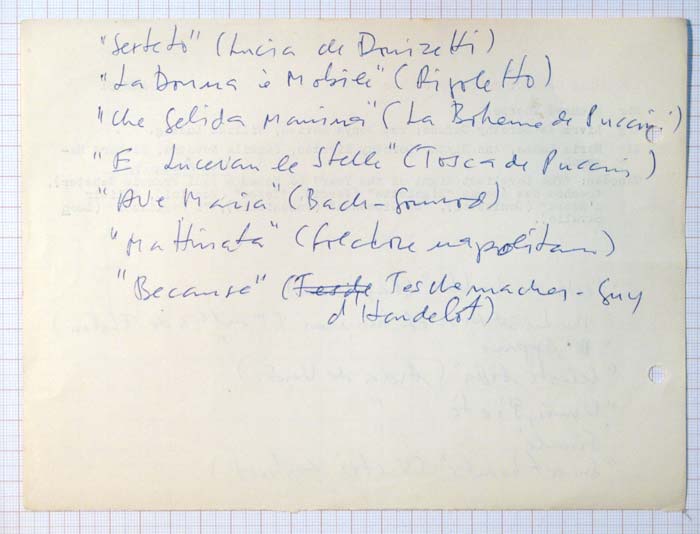 "Serteto" (Lucia de Donizetti)
"La Donna è Mobile" (Rigoletto)
"Che Gelida Manina" (La Boheme de Puccini)
"E Lucevan le Stelle" (Tosca de Puccini)
"Ave Maria" (Bach-Gounod)
"Mattinata" (folclore napolitano)
"Because" (Teschemacher - Guy
d'Hardelot)